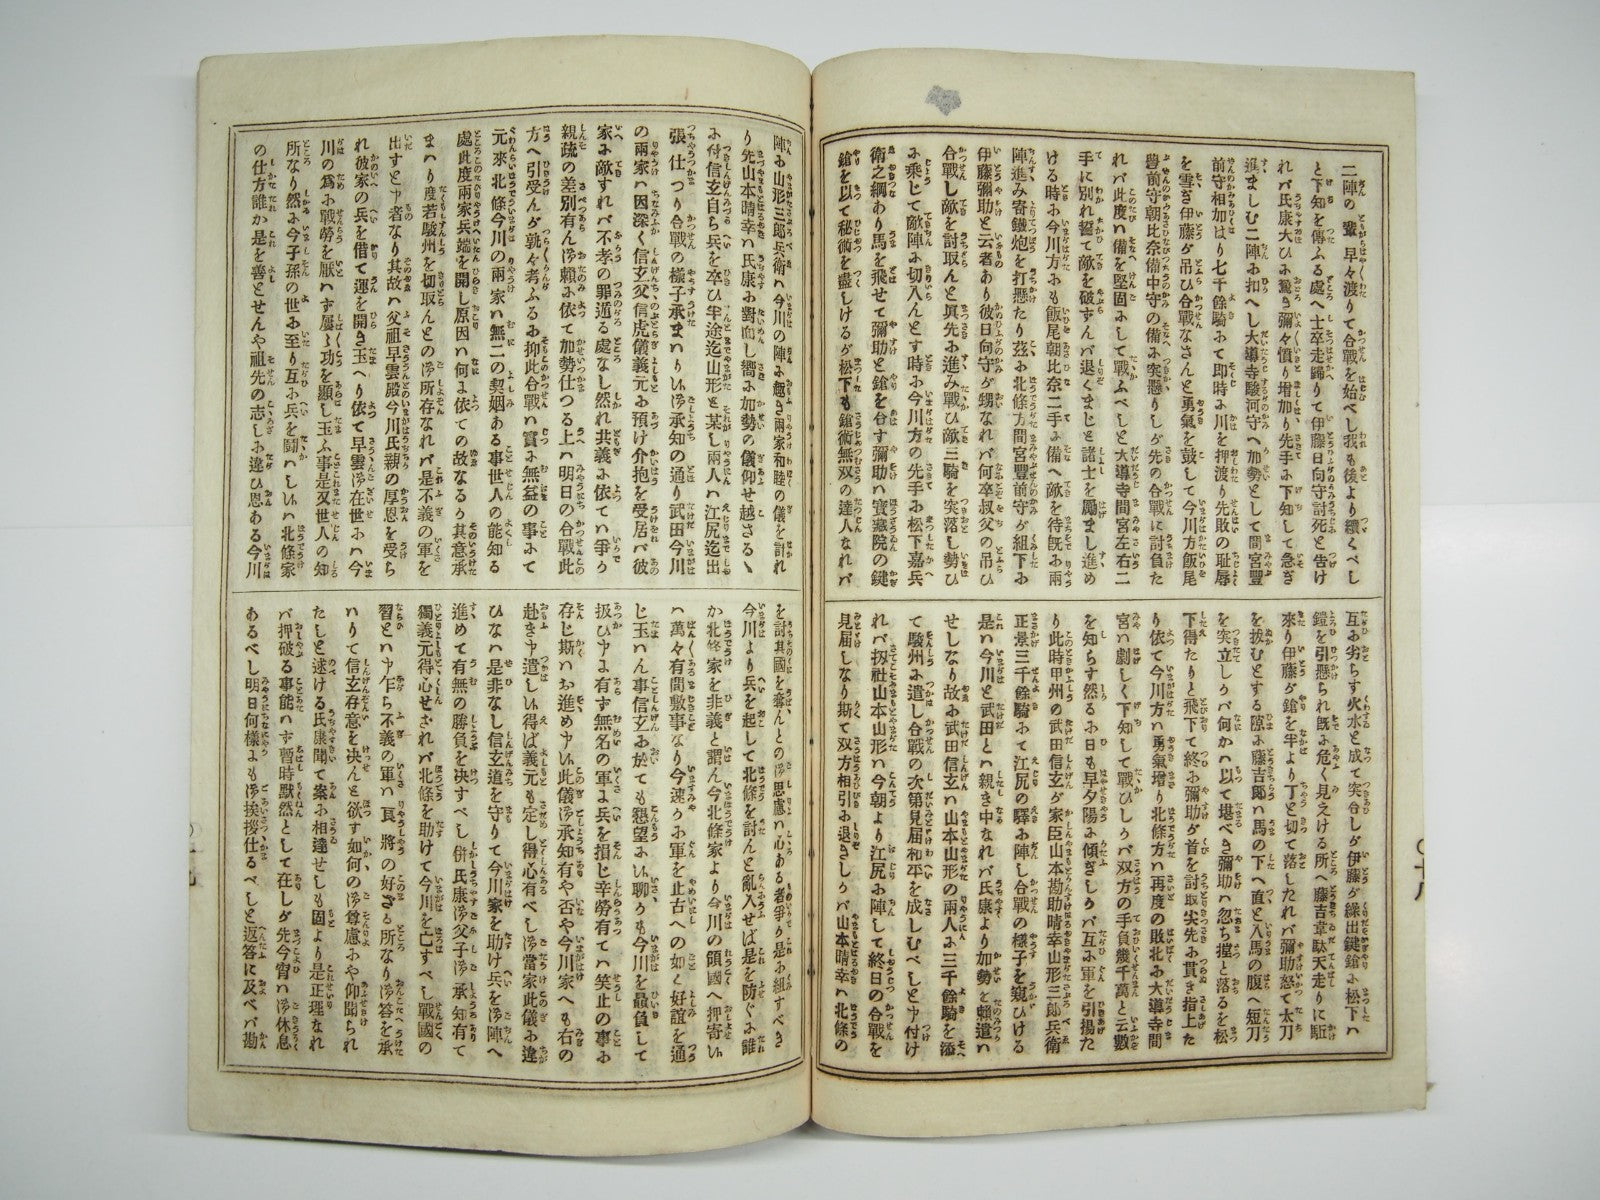 二陣の輩早々渡りて合戰を始べし我も後より繼くべし
と下知を傳ふる處へ士卒走歸りて伊藤日向守討死と告け
れバ氏康大ひに驚き彌々憤り增加り先手に下知して急ぎ
進ましむ二陣に扣へし大導寺駿河守へ加勢として間宮豐
前守相加はり七千餘騎にて即時に川を押渡り先敗の耻辱
を雪ぎ伊藤が吊ひ合戰なさんと勇氣を鼓して今川方飯尾
豊前守朝比奈備中守の備に突懸りしが先の合戰に討負た
れバ此度ハ備を堅固にして戰ふべしと大導寺間宮左右二
手に別れ誓て敵を破ずんバ退くまじと諸士を勵まし進め
ける時に今川方にも飯尾朝比奈二手に備へ敵を待旣に兩
陣進み寄鐵炮を打懸たり茲に北條方間宮豐前守が組下に
伊藤彌助と云者あり彼日向守が甥なれバ何卒叔父の吊ひ
合戰し敵を討取んと眞先に進み戰ひ敵三騎を突落し勢ひ
に乘じて敵陣に切入んとす時に今川方の先手に松下嘉兵
衛之綱あり馬を飛せて彌助と鎗を合す彌助ハ寳藏院の鍵
鎗を以て秘術を盡しけるが松下も鎗術無双の達人なれバ
互に劣らす火水と成て突合しが伊藤が繰出鍵鎗に松下ハ
鎧を引懸られ旣に危く見えける所へ藤吉韋駄天走りに駈
來り伊藤が鎗を半より丁と切て落したれバ彌助怒て太刀
を拔むとする隙に藤吉郎ハ馬の下へ直と入馬の腹へ短刀
を突立しかバ何かハ以て堪べき彌助ハ忽ち摚と落るを松
下得たりと飛下て終に彌助が首を討取尖先に貫き指上た
り依て今川方ハ勇氣增り北條方ハ再度の敗北に大導寺間
宮ハ劇しく下知して戰ひしかバ双方の手負幾千萬と云數
を知らす然るに日も早夕陽に傾ぎしかバ互に軍を引揚た
り此時甲州の武田信玄が家臣山本勘助晴幸山形三郎兵衛
正景三千餘騎にて江尻の驛に陣し合戰の樣子を窺ひける
是ハ今川と武田とハ親き中なれバ氏康より加勢を賴遣ハ
せしなり故に武田信玄ハ山本山形の兩人に三千餘騎を添
て駿州に遣し合戰の次第見届和平を成しむべしと申付け
れバ扨社山本山形ハ今朝より江尻に陣して終日の合戰を
見届しなり斯て双方相引に退きしかバ山本晴幸ハ北條の
陣に山形三郎兵衛ハ今川の陣に趣き兩家和睦の儀を計れ
り先山本晴幸ハ氏康に對面し嚮に加勢の儀仰せ越さるゝ
に付信玄自ら兵を卒ひ半途迄山形と某し兩人ハ江尻迄出
張仕つり合戰の樣子承まハりし御承知の通り武田今川
の兩家ハ因深く信玄父信虎儀義元に預け介抱を受居バ彼
家に敵すれバ不孝の罪遁る處なし然れ共義に依てハ爭か
親疏の差別有ん御賴に依て加勢仕つる上ハ明日の合戰此
方へ引受んが孰々考ふるに抑此合戰ハ實に無益の事にて
元來北條今川の兩家ハ無二の契姻ある事世人の能知る
處此度兩家兵端を開し原因ハ何に依ての故なるか其意承
まハり度若駿州を切取んとの御所存なれバ是不義の軍を
出すと申者なり其故ハ父祖早雲殿今川氏親の厚恩を受ら
れ彼家の兵を借て運を開き玉へり依て早雲御在世にハ今
川の爲に戰勞を厭ハず屡々功を顯し玉ふ事是又世人の知
所なり然に今子孫の世に至り互に兵を鬪ハしいハ北條家
の仕方誰か是を善とせんや祖先の志しに違ひ恩ある今川
を討其國を奪んとの御思慮ハ心ある者爭か是に組すべき
今川より兵を起して北條を討んと亂入せば是を防ぐに誰
か北條家を非義と謂ん今北條家より今川の領國へ押寄い
ハ萬々有間敷事なり今速かに軍を止古への如く好誼を通
じ玉ハん事信玄に於ても懇望にい聊かも今川を贔負して
扱ひ申に有ず無名の軍に兵を損じ辛勞有てハ笑止の事に
存じ斯ハお進め申い此儀御承知有や否や今川家へも右の
赴き申遣しい得ば義元も定し得心有べし御當家此儀に違
ひなバ是非なし信玄道を守りて今川家を助け兵を御陣へ
進めて有無の勝負を决すべし併氏康御父子御承知有て
獨義元得心せざれバ北條を助けて今川を亡すべし戰國の
習とハ申乍ら不義の軍ハ良將の好ざる所なり御答を承
ハりて信玄存意を决んと欲す如何の御尊慮にや仰聞られ
たしと述ける氏康聞て案に相違せしも固より是正理なれ
バ押破る事能ハず暫時默然として在しが先今宵ハ御休息
あるべし明日何樣にも御挨拶仕るべしと返答に及べバ勘